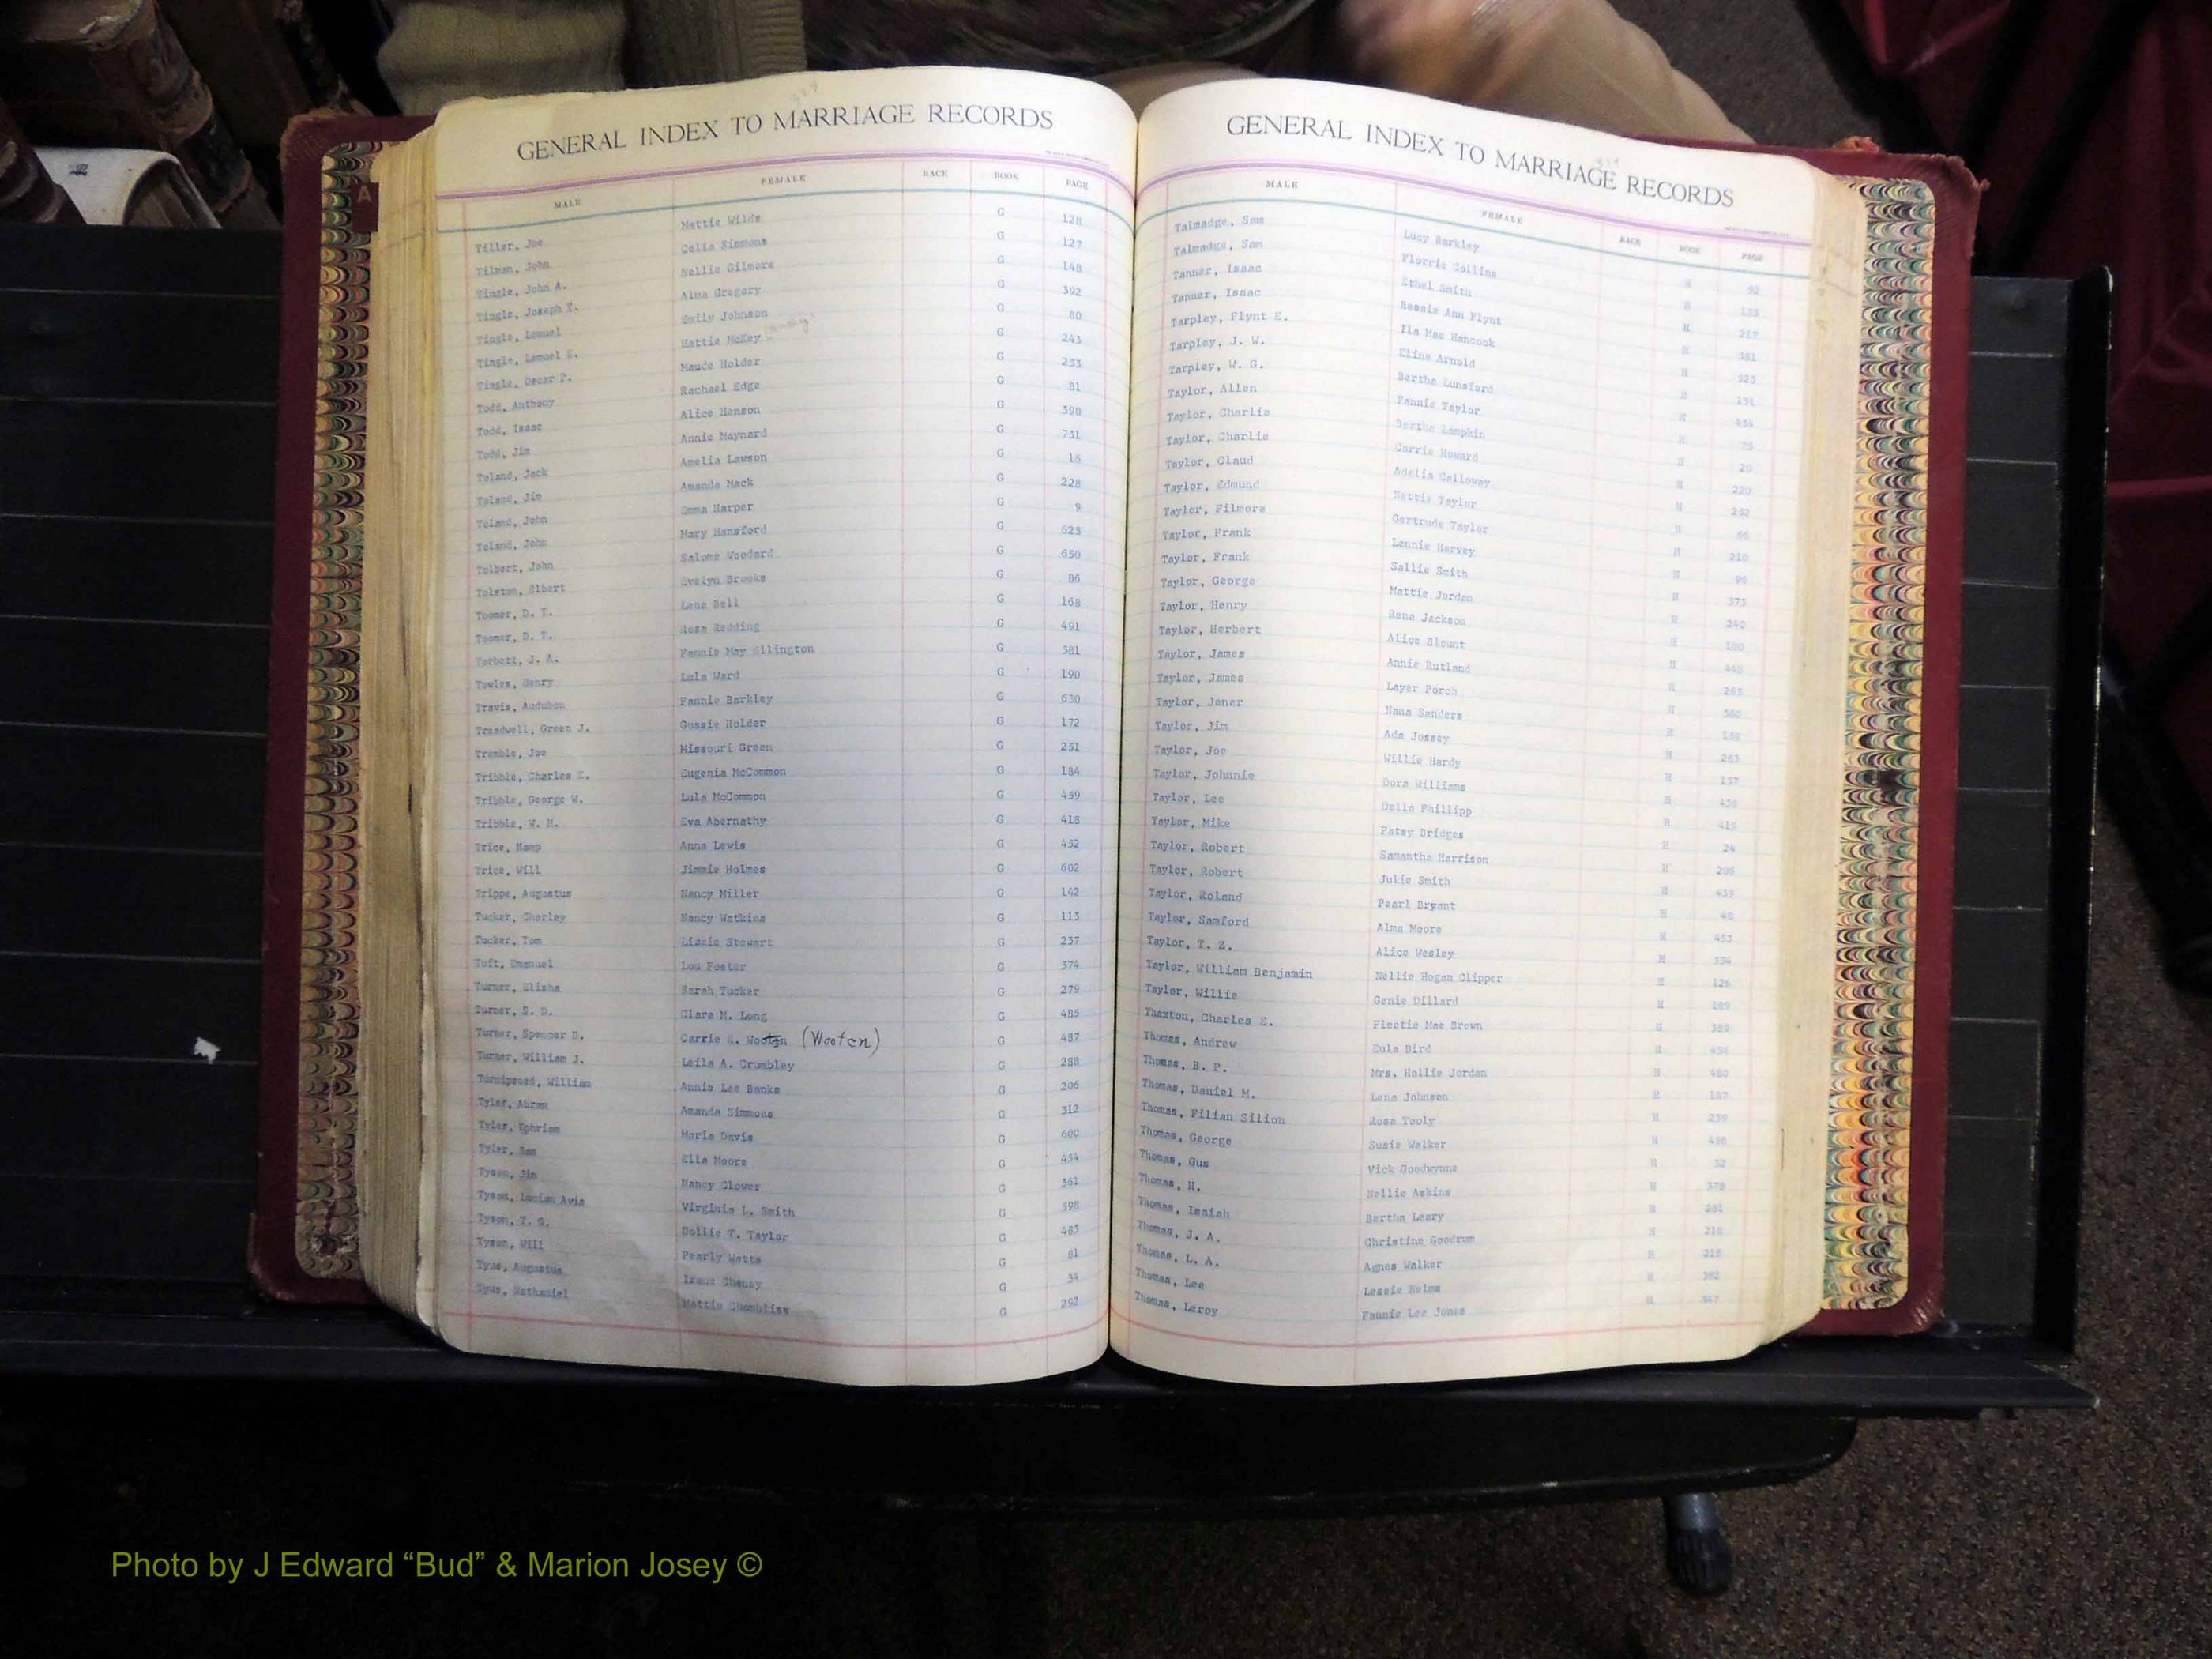 GENERAL INDEX TO MARRIAGE RECORDS
MALE FEMALE RACE BOOK PAGE
Tiller, Joe Mattie Wilds G 128
Tilman, John Celia Simmons G 127
Tingle, John A. Nellie Gilmore G 148
Tingle, Joseph T. Alma Gregory G 392
Tingle, Lemuel Emily Johnson G 80
Tingle, Lemuel E. Hattie McKey G 243
Tingle, Oscar P. Maude Holder G 253
Todd, Anthony Rachael Edge G 81
Todd, Isaac Alice Henson G 390
Todd, Jim Annie Maynard G 731
Toland, Jack Amelia Lawson G 16
Toland, Jim Amanda Mack G 228
Toland, John Emma Harper G 9
Toland, John Mary Hansford G 625
Tolbert, John Salome Woodard G 650
Tolston, Elbert Evelyn Brooks G 86
Toomer, D. T. Lena Bell G 168
Toomer, D. T. Rosa Redding G 491
Torbett, J. A. Fannie May Ellington G 581
Towles, Henry Lula Ward G 190
Travis, Audubon Fannie Barkley G 630
Treadwell, Green J. Gussie Holder G 172
Tremble, Joe Missouri Green G 251
Tribble, Charles E. Eugenia McCommon G 184
Tribble, George W. Lula McCommon G 459
Tribble, W. H. Eva Abernathy G 418
Trice, Hamp Anna Lewis G 452
Trice, Will Jimmie Holmes G 602
Trippe, Augustus Nancy Miller G 142
Tucker, Charley Nancy Watkins G 113
Tucker, Tom Lizzie Stewart G 237
Tuft, Emanuel Lou Foster G 374
Turner, Elisha Sarah Tucker G 279
Turner, S. D. Clara M. Long G 485
Turner, Spencer D. Carrie E. Wooten (Wooten) G 487
Turner, William J. Leila A. Crumbley G 288
Turnipseed, William Annie Lee Banks G 206
Tyler, Abram Amanda Simmons G 312
Tyler, Ephriam Marie Davis G 600
Tyler, Sam Ella Moore G 454
Tyson, Jim Nancy Clower G 361
Tyson, Lucian Avis Virginia L. Smith G 598
Tyson, T. G. Dollie T. Taylor G 485
Tyson, Will Pearly Watts G 81
Tyus, Augustus Irene Chaney G 34
Tyus, Nathaniel Mattie Chambliss G 292
GENERAL INDEX TO MARRIAGE RECORDS
MALE FEMALE RACE BOOK PAGE
Talmadge, Sam Lucy Barkley H 92
Talmadge, Sam Florrie Collins H 155
Tanner, Isaac Ethel Smith H 217
Tanner, Isaac Ressie Ann Flynt H 381
Tarpley, Flynt E. Ila Mae Hancock H 323
Tarpley, J. W. Eline Arnold H 151
Tarpley, W. G. Bertha Lunsford H 434
Taylor, Allen Fannie Taylor H 75
Taylor, Charlie Bertha Lampkin H 20
Taylor, Charlie Carrie Howard H 220
Taylor, Claud Adelia Calloway H 252
Taylor, Edmund Nettie Taylor H 66
Taylor, Filmore Gertrude Taylor H 210
Taylor, Frank Lennie Harvey H 96
Taylor, Frank Sallie Smith H 373
Taylor, George Mattie Jordan H 240
Taylor, Henry Rena Jackson H 100
Taylor, Herbert Alice Blount H 440
Taylor, James Annie Rutland H 265
Taylor, James Layer Porch H 380
Taylor, Jener Nana Sanders H 158
Taylor, Jim Ada Jossey H 263
Taylor, Joe Willie Hardy H 157
Taylor, Johnnie Dora Williams H 436
Taylor, Lee Della Phillipp H 415
Taylor, Mike Patsy Bridges H 24
Taylor, Robert Samantha Harrison H 206
Taylor, Robert Julie Smith H 439
Taylor, Roland Pearl Bryant H 48
Taylor, Samford Alma Moore H 453
Taylor, T. Z. Alice Wesley H 334
Taylor, William Benjamin Nellie Hogan Clipper H 126
Taylor, Willie Genie Dillard H 189
Thaxton, Charles E. Fleetie Mae Brown H 389
Thomas, Andrew Eula Bird H 456
Thomas, B. P. Mrs. Hollie Jordan H 480
Thomas, Daniel M. Lena Johnson H 187
Thomas, Filian Silion Rosa Tooly H 239
Thomas, George Susie Walker H 436
Thomas, Gus Vick Goodwynne H 52
Thomas, H. Nellie Askins H 378
Thomas, Isaiah Bertha Leary H 261
Thomas, J. A. Christine Goodrum H 216
Thomas, L. A. Agnes Walker H 218
Thomas, Lee Lessie Nelms H 382
Thomas, Leroy Fannie Lee Jones H 347
A
Photo by J Edward “Bud” & Marion Josey ©